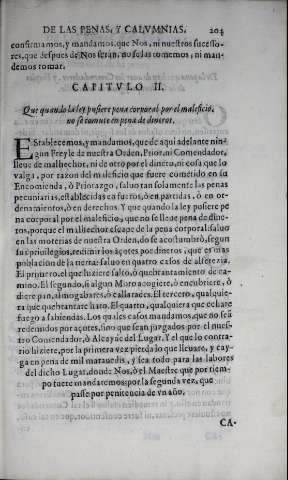 DE LAS PENAS, Y CALVMNIAS. 203
confirmamos, y mandamos, que Nos, ni nuestros sucesso-
res, que despues de Nos serán, no las tomemos, ni man-
demos tomar.
CAPITVLO II.
Que quando la ley pusiere pena corporal por el maleficio,
no se comute en pena de dineros.
Establecemos, y mandamos, que de aqui adelante nin-
gun Freyle de nuestra Orden, Prior, ni Comendador,
lleue de malhechor, ni de otro por el dineto, ni cosa que lo
valga, por razon del maleficio que fuere cometido en su
Encomienda, ò Priorazgo, saluo tan solamente las penas
pecuniarias, establecidas en fueros, ò en partidas, ò en or-
denamientos, ò en derechos. Y que quando la ley pusiere pe
na corporal por el maleficio, que no se lleue pena de dine-
ros, porque el malhechor escape de la pena corporal: saluo
en las moterias de nuestra Orden, do se acostumbrò, segun
sus priuilegios, redimir los açotes por dineros, que es mas
poblacion de la tierra: saluo en quatro casos de alferezia.
El primero, el que hiziere salto, ò quebrantamiento de ca-
mino. El segundo, si algun Moro acogiere, ò encubriere, ò
diere pan, à almogabares, ò à allaraces. El tercero, qualquie-
ra que quebrantare hato. El quarto, qualquiera que echare
fuego a sabiendas. Los quales casos mandamos, que no seã
redemidos por açotes, sino que sean juzgados por el nues-
tro Comendador, ò Alcayde del Lugar. Y el que lo contra-
rio hiziere, por la primera vez pierda lo que lleuare, y cay-
ga en pena de mil marauedis, y sea todo para las labores
del dicho Lugar, donde Nos, ò el Maestre que por tiem-
po fuere mandaremos: por la segunda vez, que
passe por penitencia de vn año.
CA-